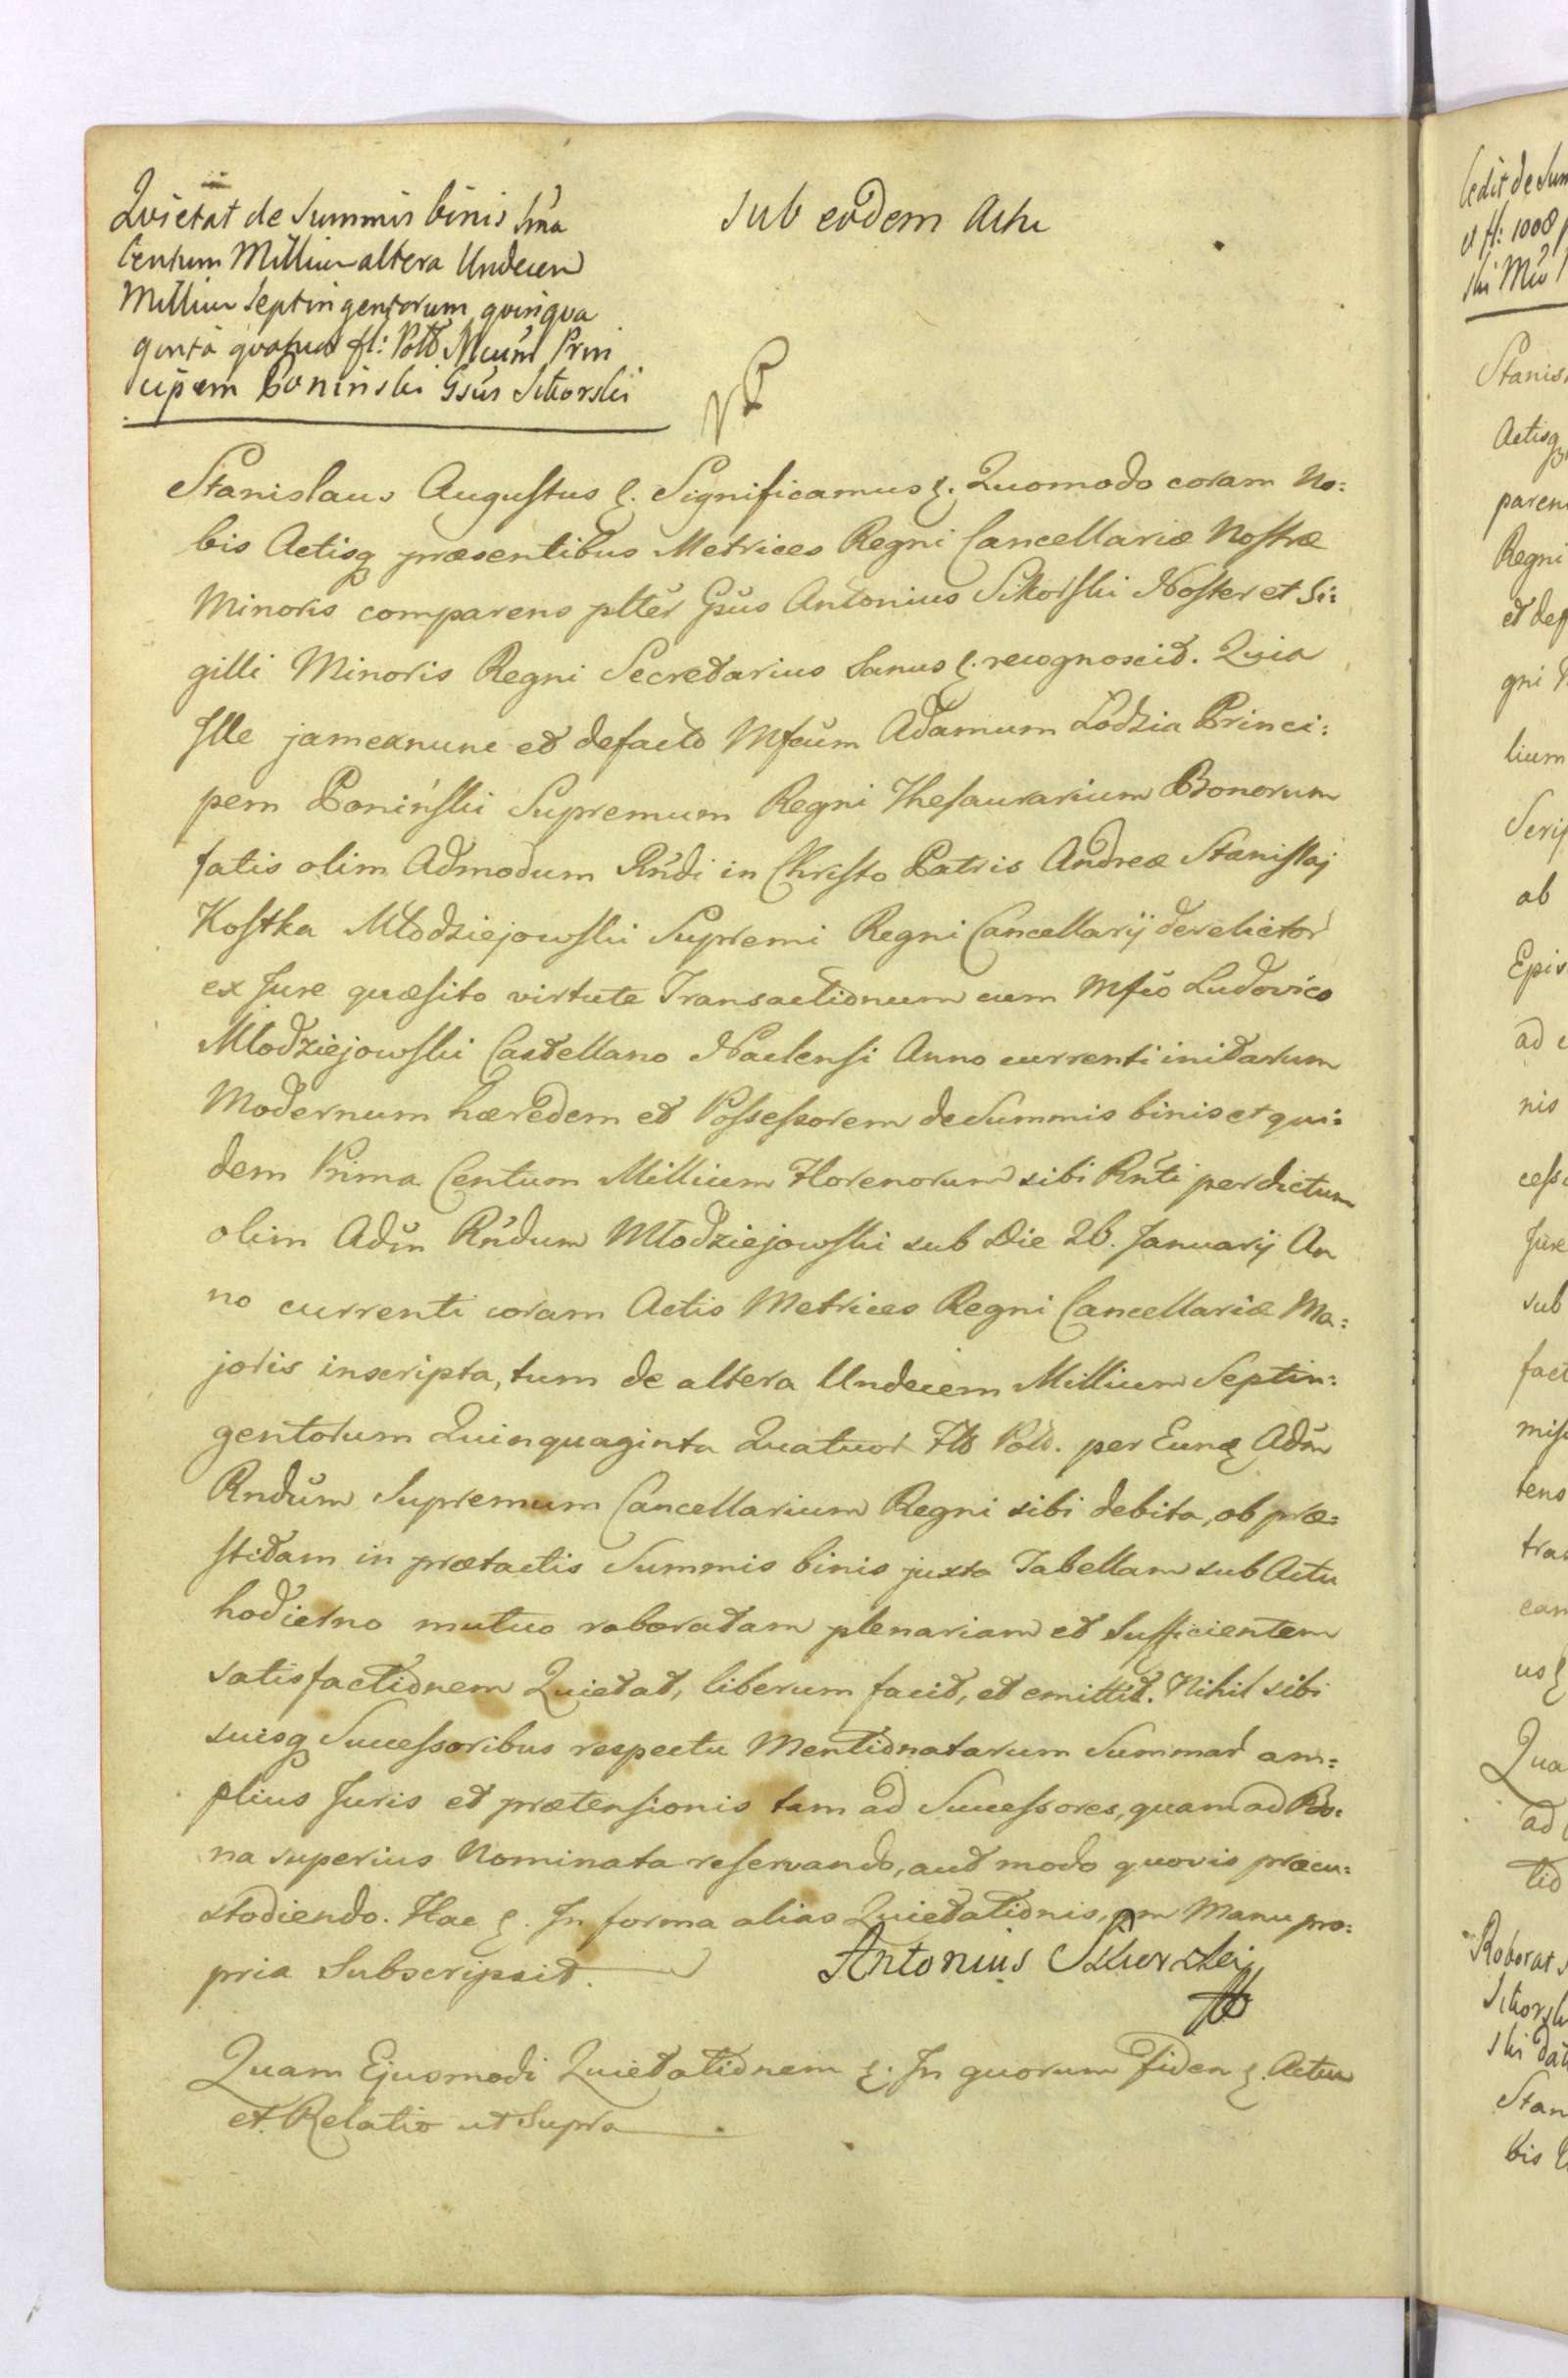 Quietat de Summis binis
Centum Millium altera Undecem
Millium Septingentorum quinqua
ginta quatuor fl: Pol Mcum Prin
cipem Poniński Gsus Sikorski
Sub eodem Actu
Stanislaus Augustus &. Significamus &. Quomodo coram No:
bis Actisq praesentibus Metrices Regni Cancellariæ Nostræ
Minoris comparens pltér Gsus Antonius Sikorski Noster et Si:
gilli Minoris Regni Secretarius Sanus &. recognoscit. Quia
Ille jamexnunc et defacto Mfcum Adamum Lodzia Princi:
pem Poniński Supremum Regni Thesaurarium Bonorum
fatis olim Admodum Rndi in Christo Patris Andreæ Stanislaj
Kostka Młodziejowski Supremi Regni Cancellarij derelictor
ex Jure quæsito virtute Transactionum cum Mfco Ludovico
Mlodziejowski Castellano Naclensi Anno currenti initarum
Modernum hæredem et Possessorem de Summis binis et qui:
dem Prima Centum Millium Florenorum sibi Rnti per dictum
olim Adm Rndum Młodziejowski sub Die 26. Januarij An
no currenti coram Actis Metrices Regni Cancellariæ Ma:
joris inscripta, tum de altera Undecem Millium Septin:
gentorum Quinquaginta Quatuor Fl Pol. per Eund Adm
Rndum Supremum Cancellarium Regni sibi debita, ob præ:
stitam in prætactis Summis binis juxta Tabellam sub Actu
hodierno mutuo roboratam plenariam et Sufficientem
satisfactionem Quietat, liberum facit, et emittit. Nihil sibi
suisq Successoribus respectu Mentionatarum Summar am:
plius Juris et prætensionis tam ad Successores, quam ad Bo:
na superius Nominata reservando, aut modo quovis præcu:
stodiendo. Hac &. In forma alias Quietationis, qm Manu pro:
pria Subscripsit.
Antonius Sikorski
Quam Ejusmodi Quietationem &. In quorum fidem &. Actum
et Relatio ut Supra